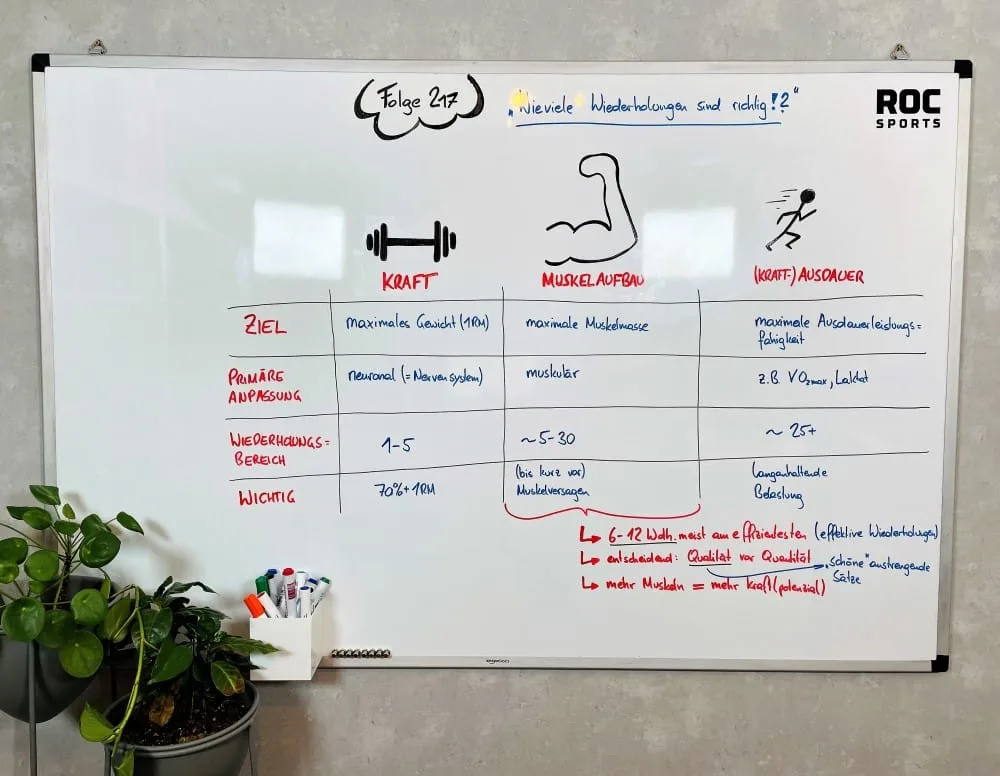 Folge 217
„Wieviele Wiederholungen sind richtig!?"
ROC
SPORTS
KRAFT
MUSKELAUFBAU
(KRAFT-) AUSDAUER
ZIEL
maximales Gewicht (1RM)
maximale Muskelmasse
maximale Ausdauerleistungs=
fähigkeit
PRIMÄRE
ANPASSUNG
neuronal (= Nervensystem)
muskulär
z.B. VO2max, Laktat
WIEDERHOLUNGS=
BEREICH
1-5
~5-30
~ 25+
WICHTIG
70%+ 1RM
(bis kurz vor)
Muskelversagen
langanhaltende
Belastung
↳ 6-12 Wdh. meist am effizientesten (effektive Wiederholungen)
↳ entscheidend: Qualität vor Quantität
„schöne" anstrengende
Sätze
↳ mehr Muskeln = mehr Kraft (potenzial)